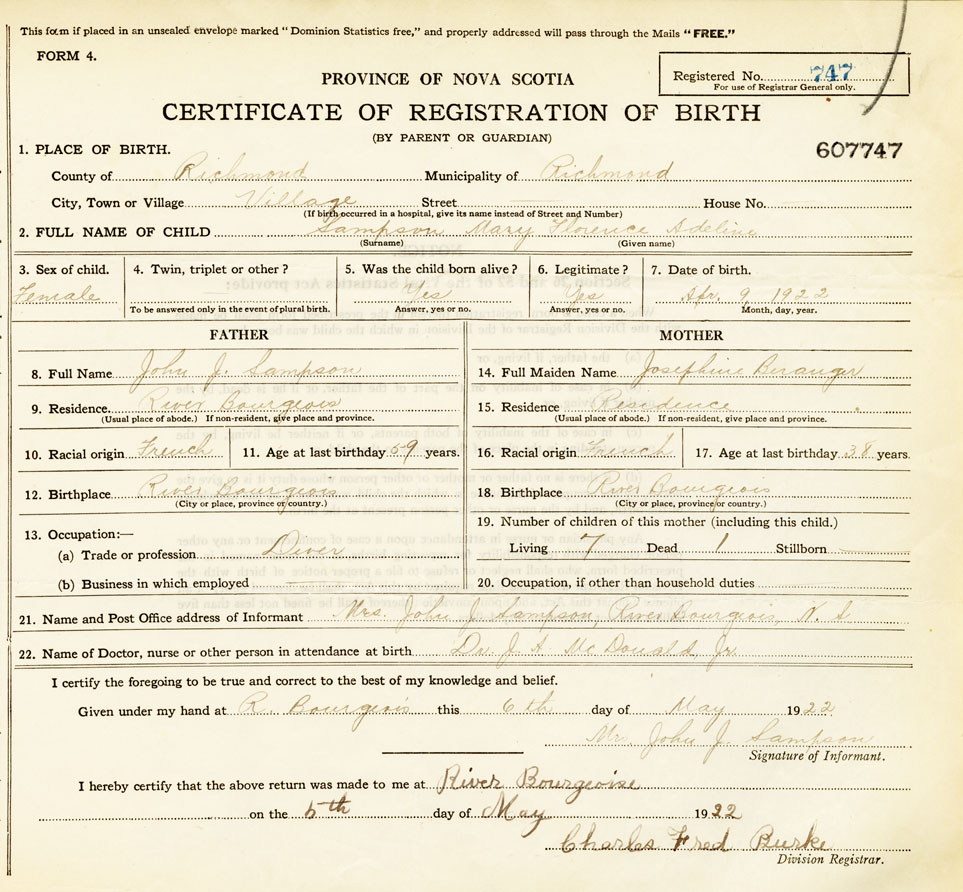 This form if placed in an unsealed envelope marked "Dominion Statistics free," and properly addressed will pass through the Mails "FREE."
FORM 4.
PROVINCE OF NOVA SCOTIA
Registered No. 747
For use of Registrar General only.
CERTIFICATE OF REGISTRATION OF BIRTH
(BY PARENT OR GUARDIAN)
607747
1. PLACE OF BIRTH.
County of Richmond Municipality of Richmond
City, Town or Village Village Street House No.
(If birth occurred in a hospital, give its name instead of Street and Number)
2. FULL NAME OF CHILD Sampson Mary Florence Adeline
(Surname) (Given name)
3. Sex of child. 4. Twin, triplet or other? 5. Was the child born alive? 6. Legitimate? 7. Date of birth.
Female Yes Yes Apr. 9 1922
To be answered only in the event of plural birth. Answer, yes or no. Answer, yes or no. Month, day, year.
FATHER MOTHER
8. Full Name John J. Sampson 14. Full Maiden Name Josephine Beranger
9. Residence River Bourgeois 15. Residence Residence
(Usual place of abode.) If non-resident, give place and province. (Usual place of abode.) If non-resident, give place and province.
10. Racial origin French 11. Age at last birthday 59 years. 16. Racial origin French 17. Age at last birthday 38 years.
12. Birthplace River Bourgeois 18. Birthplace River Bourgeois
(City or place, province or country.) (City or place, province or country.)
13. Occupation:— 19. Number of children of this mother (including this child.)
(a) Trade or profession Diver Living 7 Dead 1 Stillborn
(b) Business in which employed 20. Occupation, if other than household duties
21. Name and Post Office address of Informant Mrs. John J. Sampson, River Bourgeois, N. S
22. Name of Doctor, nurse or other person in attendance at birth Dr. J A McDonald Jr.
I certify the foregoing to be true and correct to the best of my knowledge and belief.
Given under my hand at R. Bourgeois this 6th day of May 1922
Mr. John J. Sampson
Signature of Informant.
I hereby certify that the above return was made to me at River Bourgeoise
on the 5th day of May 1922
Charles Fred Burke
Division Registrar.